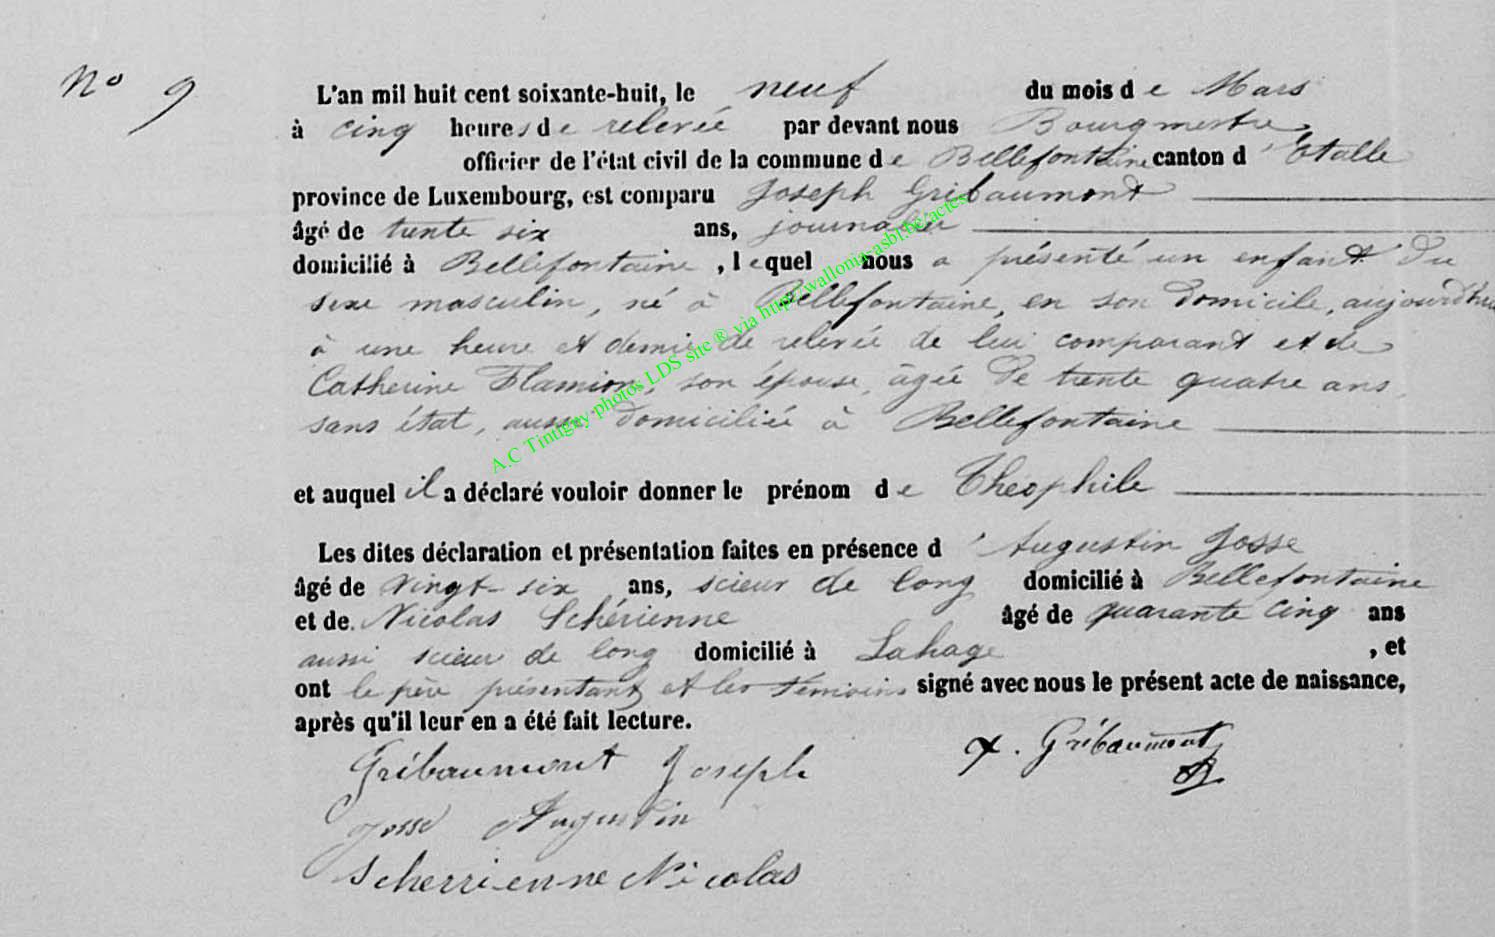 No 9
L'an mil huit cent soixante-huit, le neuf du mois de Mars
à cinq heures de relevée par devant nous Bourgmestre
officier de l'état civil de la commune de Bellefontaine canton d'Etalle
province de Luxembourg, est comparu Joseph Gribaumont
âgé de trente six ans, journalier
domicilié à Bellefontaine, lequel nous a présenté un enfant du
sexe masculin, né à Bellefontaine, en son domicile, aujourd'hui
à une heure et demie de relevée de lui comparant et de
Catherine Flamion, son épouse, âgée de trente quatre ans,
sans état, aussi domiciliée à Bellefontaine
A.C Tintigny photos LDS site ® via http://wallonia-asbl.be/actes
et auquel il a déclaré vouloir donner le prénom de Théophile
Les dites déclaration et présentation faites en présence d'Augustin Josse
âgé de vingt-six ans, scieur de long domicilié à Bellefontaine
et de Nicolas Schérienne âgé de quarante cinq ans
aussi scieur de long domicilié à Lahage, et
ont le père présentant et les témoins signé avec nous le présent acte de naissance,
après qu'il leur en a été fait lecture.
Gribaumont Joseph
Gribaumont
Josse Augustin
Scherrienne Nicolas